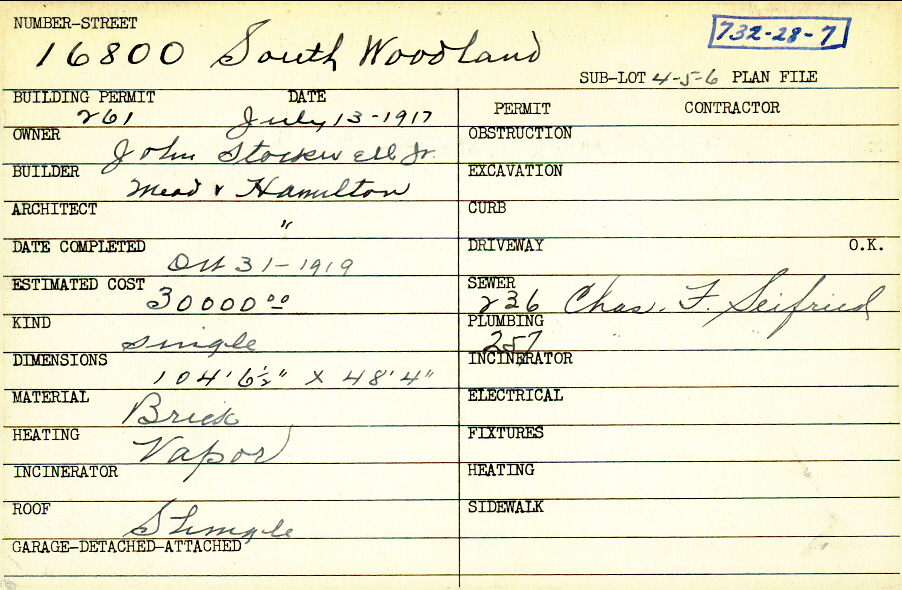 NUMBER-STREET
16800 South Woodland
732-28-7
SUB-LOT 4-5-6 PLAN FILE
BUILDING PERMIT DATE
261 July 13-1917
OWNER
John Stockwell Jr.
BUILDER
Mead & Hamilton
ARCHITECT
"
DATE COMPLETED
Oct 31-1919
ESTIMATED COST
30000 00
KIND
single
DIMENSIONS
104' 6½" x 48' 4"
MATERIAL
Brick
HEATING
Vapor
INCINERATOR
ROOF
Shingle
GARAGE-DETACHED-ATTACHED
PERMIT CONTRACTOR
OBSTRUCTION
EXCAVATION
CURB
DRIVEWAY O.K.
SEWER
236 Chas. F. Seifried
PLUMBING
257 " "
INCINERATOR
ELECTRICAL
FIXTURES
HEATING
SIDEWALK